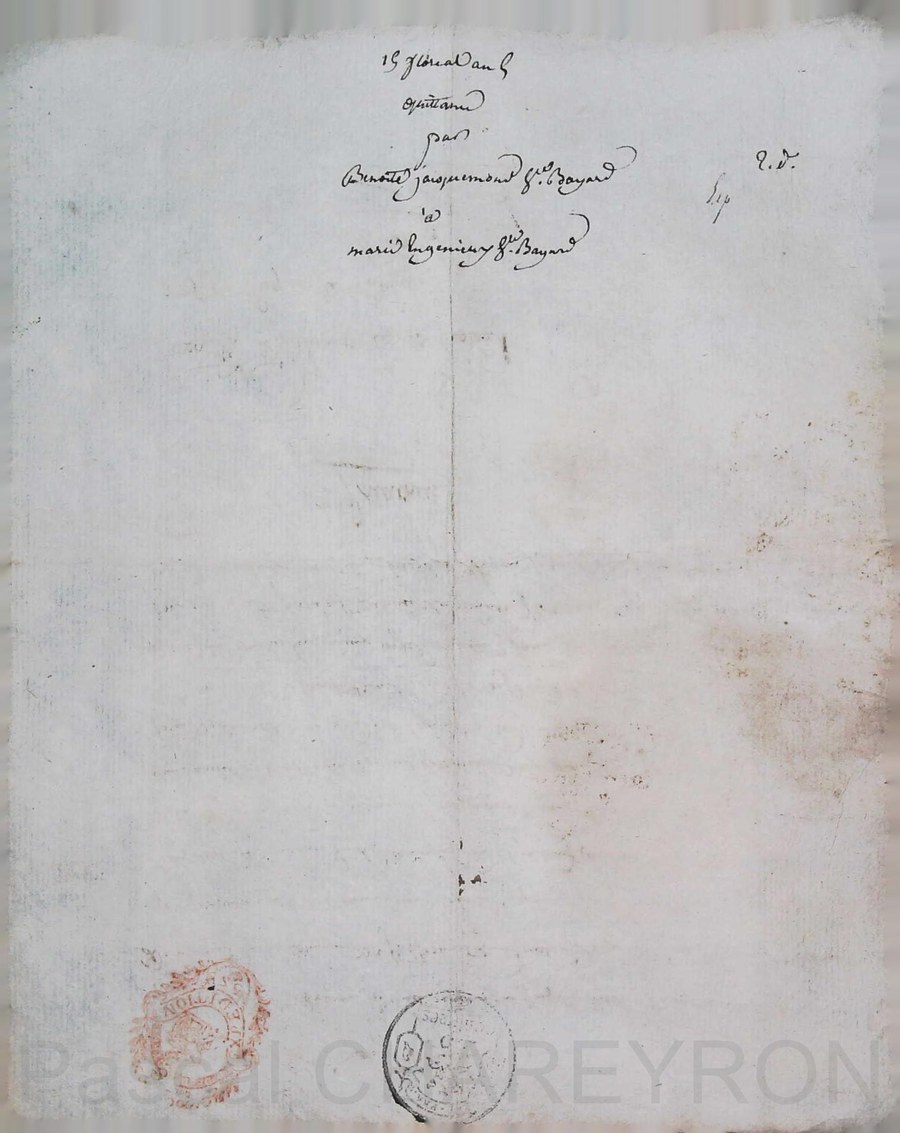 15 floreal an 5
quittance
par
Benoite jacquemond Ve. Bayard
R. d.
à
marie Engenieux Ve. Bayard
EXPEDITION
Pascal CHAREYRON